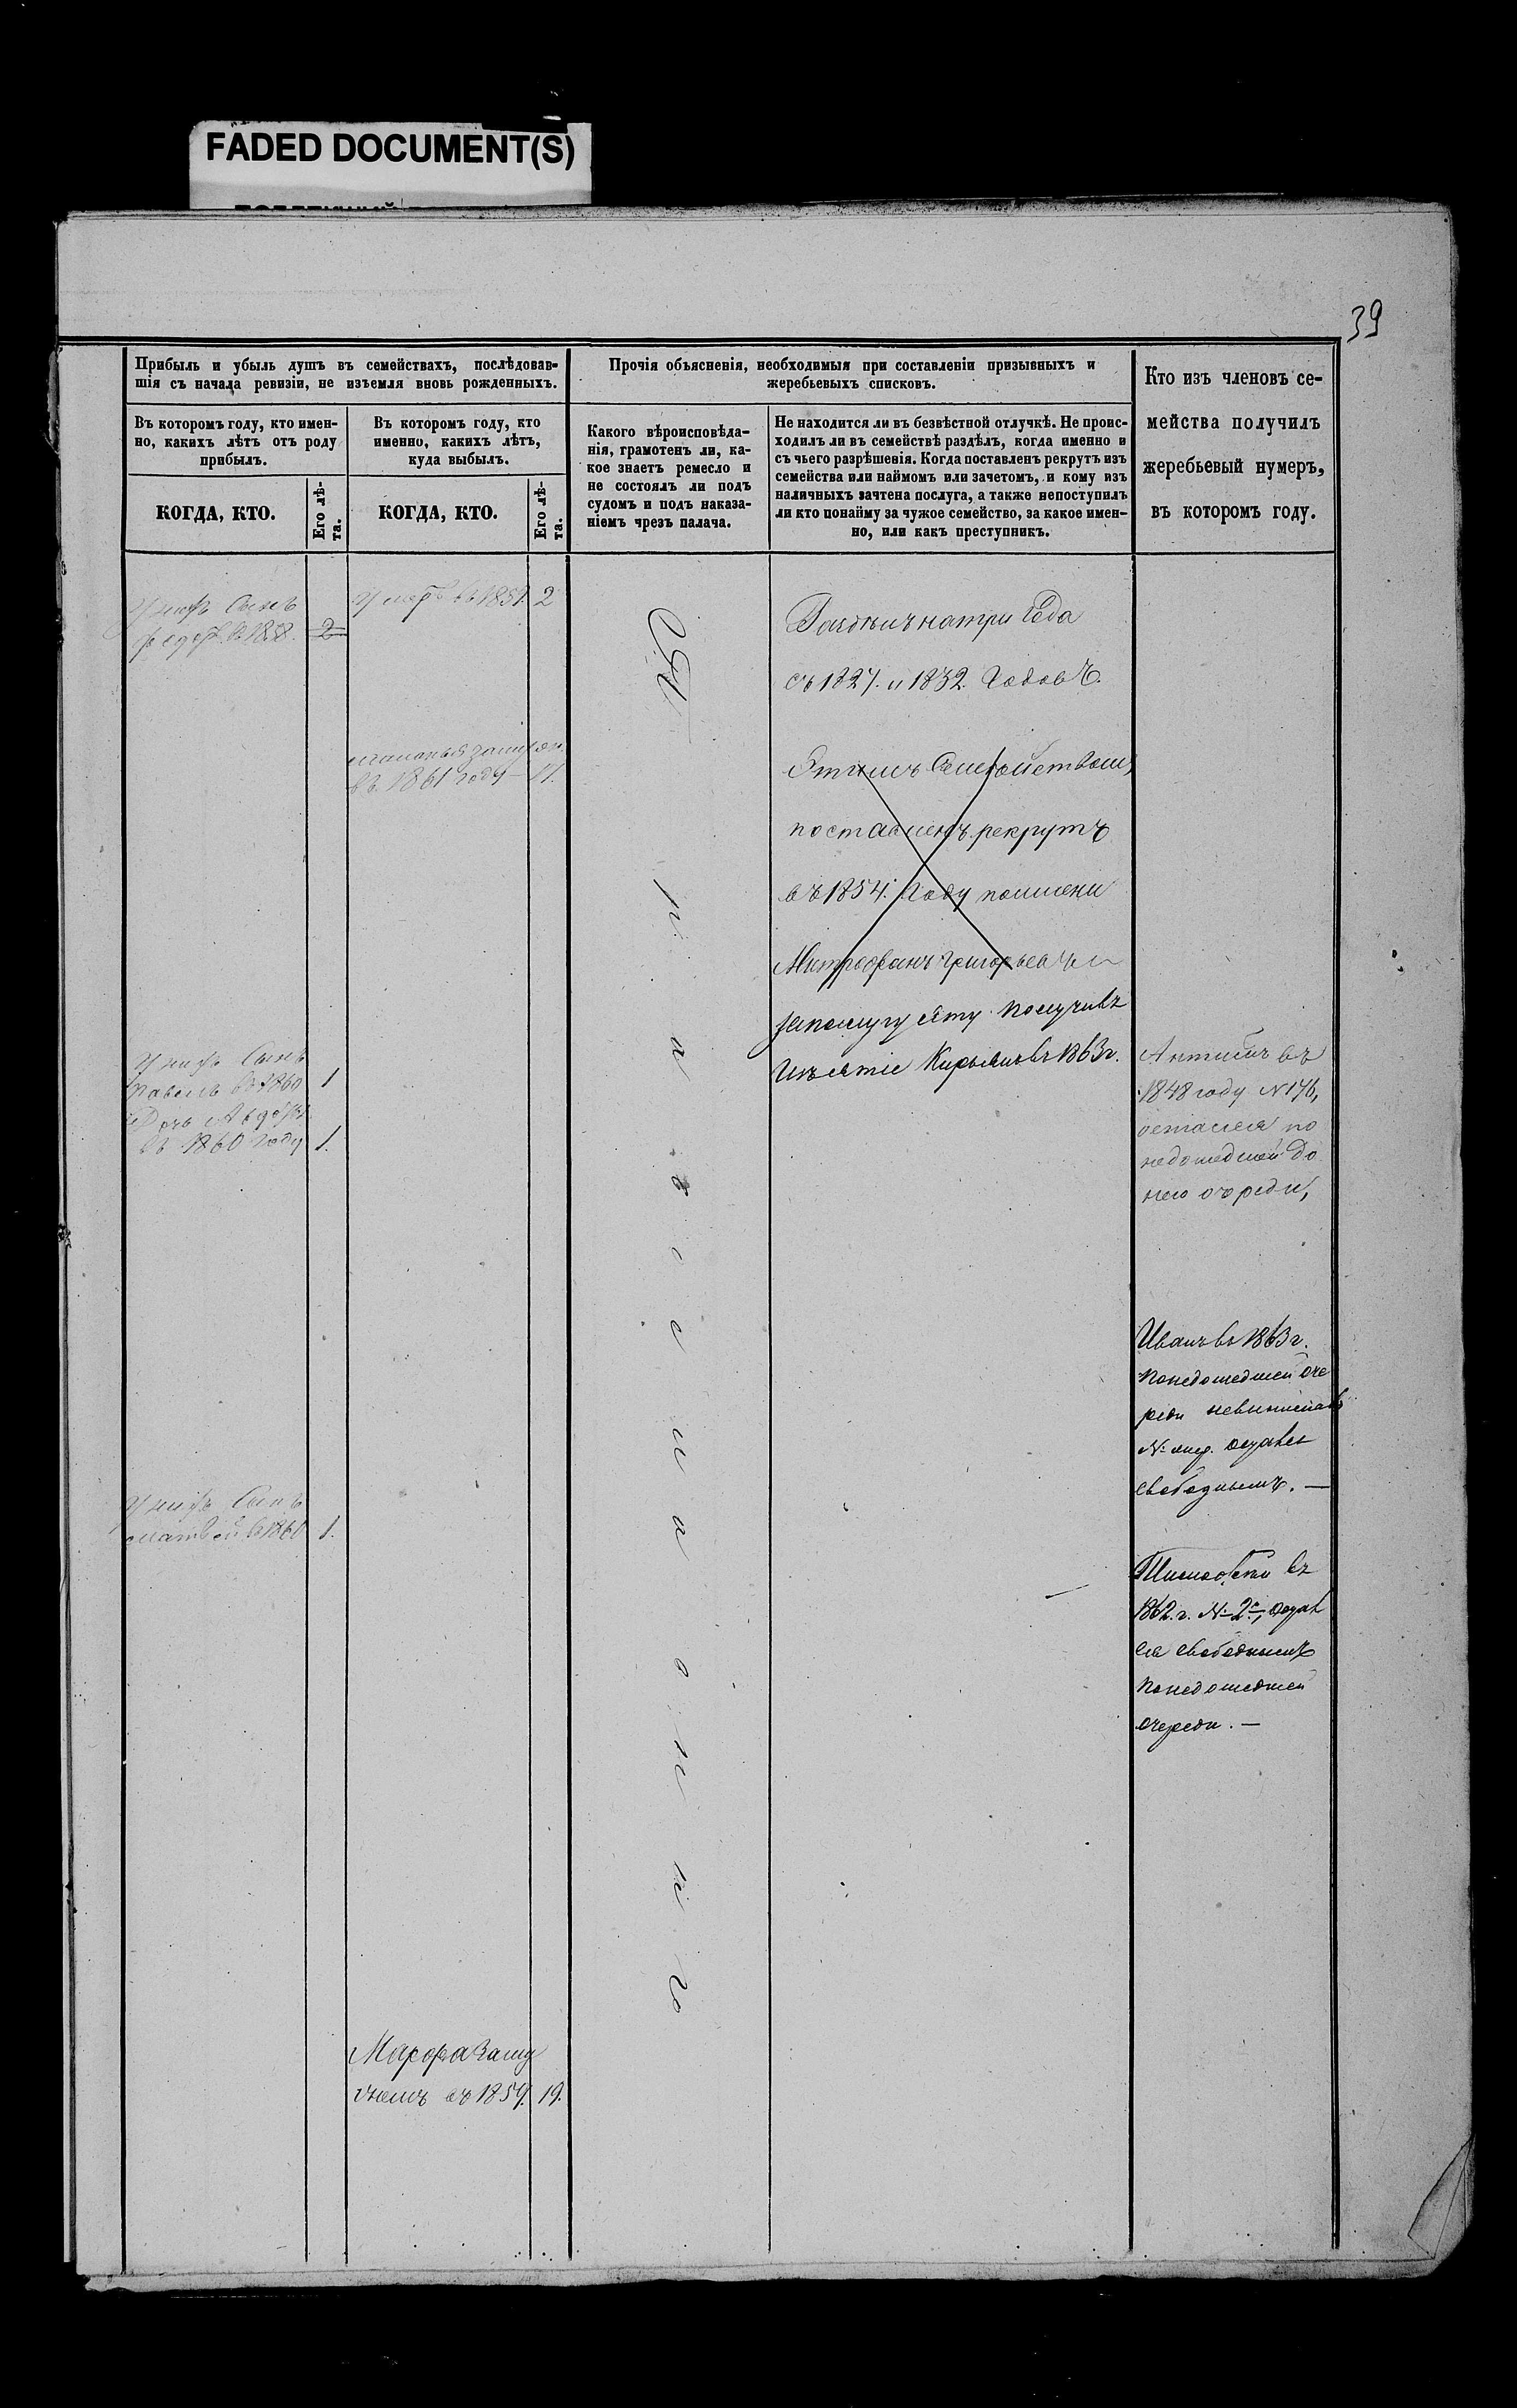 FADED DOCUMENT(S)
39
Прибыль и убыль душъ въ семействахъ, послѣдовав-
шія съ начала ревизіи, не изъемля вновь рожденныхъ.
Въ которомъ году, кто имен-
но, какихъ лѣтъ отъ роду
прибылъ.
КОГДА, КТО.
Его лѣ-
та.
Въ которомъ году, кто
именно, какихъ лѣтъ,
куда выбылъ.
КОГДА, КТО.
Его лѣ-
та.
Прочія объясненія, необходимыя при составленіи призывныхъ и
жеребьевыхъ списковъ.
Какого вѣроисповѣда-
нія, грамотенъ ли, ка-
кое знаетъ ремесло и
не состоялъ ли подъ
судомъ и подъ наказа-
ніемъ чрезъ палача.
Не находится ли въ безвѣстной отлучкѣ. Не проис-
ходилъ ли въ семействѣ раздѣлъ, когда именно и
съ чьего разрѣшенія. Когда поставленъ рекрутъ изъ
семейства или наймомъ или зачетомъ, и кому изъ
наличныхъ зачтена послуга, а также непоступилъ
ли кто понайму за чужое семейство, за какое имен-
но, или какъ преступникъ.
Кто изъ членовъ се-
мейства получилъ
жеребьевый нумеръ,
въ которомъ году.
У нихъ Сынъ
Федоръ въ 1858. 2
У нихъ Сынъ
Павелъ въ 1860 1
Дочь
въ 1860 году 1.
У нихъ Сынъ
Матвей въ 1860 1.
Умеръ въ 1859. 2
въ 1861 году 17.
Марфа Заму
жемъ въ 1859. 19.
П
р
а
в
о
с
л
а
в
н
а
г
о
на три Года
съ 1827. и 1832. Годовъ.
Этимъ Семействомъ
поставленъ рекрутъ
въ 1854. Году по имени
Митрофанъ Григорьевъ и
за послугу эту получивъ
Кирьянъ въ 1863 г.
Антипъ въ
1848 году N 176,
остался по
недошедшей до
него очереди,
Иванъ въ 1863 г.
понедошедшей оче
реди
N.
свободнымъ. —
Тимофей въ
1862. г. N 2й, остал
ся свободнымъ
понедошедшей
очереди. —